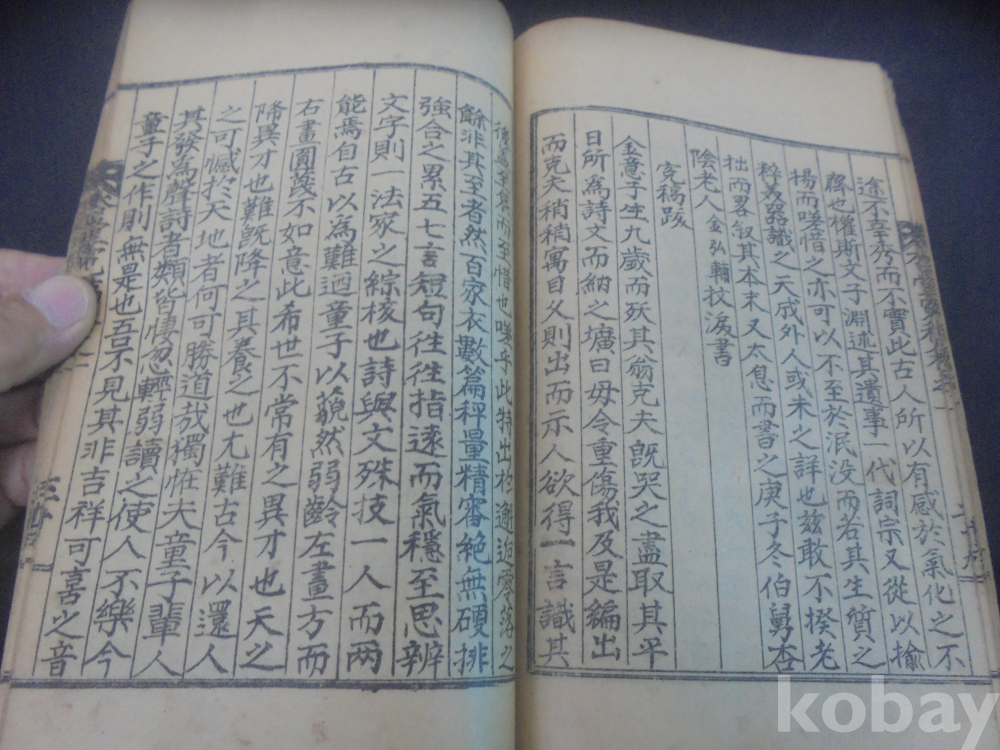 途不幸秀而不實此古人所以有感於氣化之不
齊也權斯文子淵述其遺事一代詞宗又從以揄
揚而嗟惜之亦可以不至於泯没而若其生質之
粹美器識之天成外人或未之詳也玆敢不揆老
拙而畧叙其本末又太息而書之庚子冬伯舅杏
陰老人金弘輔抆淚書
稿跋
金意子生九歲而殀其翁克夫旣哭之盡取其平
日所爲詩文而納之壙曰毋令重傷我及是編出
而克夫稍稍寓目乂則出而示人欲得一言識其
後焉至舊而至惜也嗟乎此特出於邂逅零落之
餘非其至者然百家衣數篇秤量精審絶無硬排
強合之累五七言短句往往指遠而氣穩至思辨
文字則一法家之綜核也詩與文殊技一人而两
能焉自古以為難迺童子以藐然弱齡左畫方而
右畫圓蔑不如意此希世不常有之異才也天之
降異才也難旣降之其養之也尤難古今以還人
之可憾於天地者何可勝道哉獨恠夫童子輩人
其發爲聲詩者類皆悽忽輕弱讀之使人不樂今
童子之作則無是也吾不見其非吉祥可喜之音
二十九
kobay